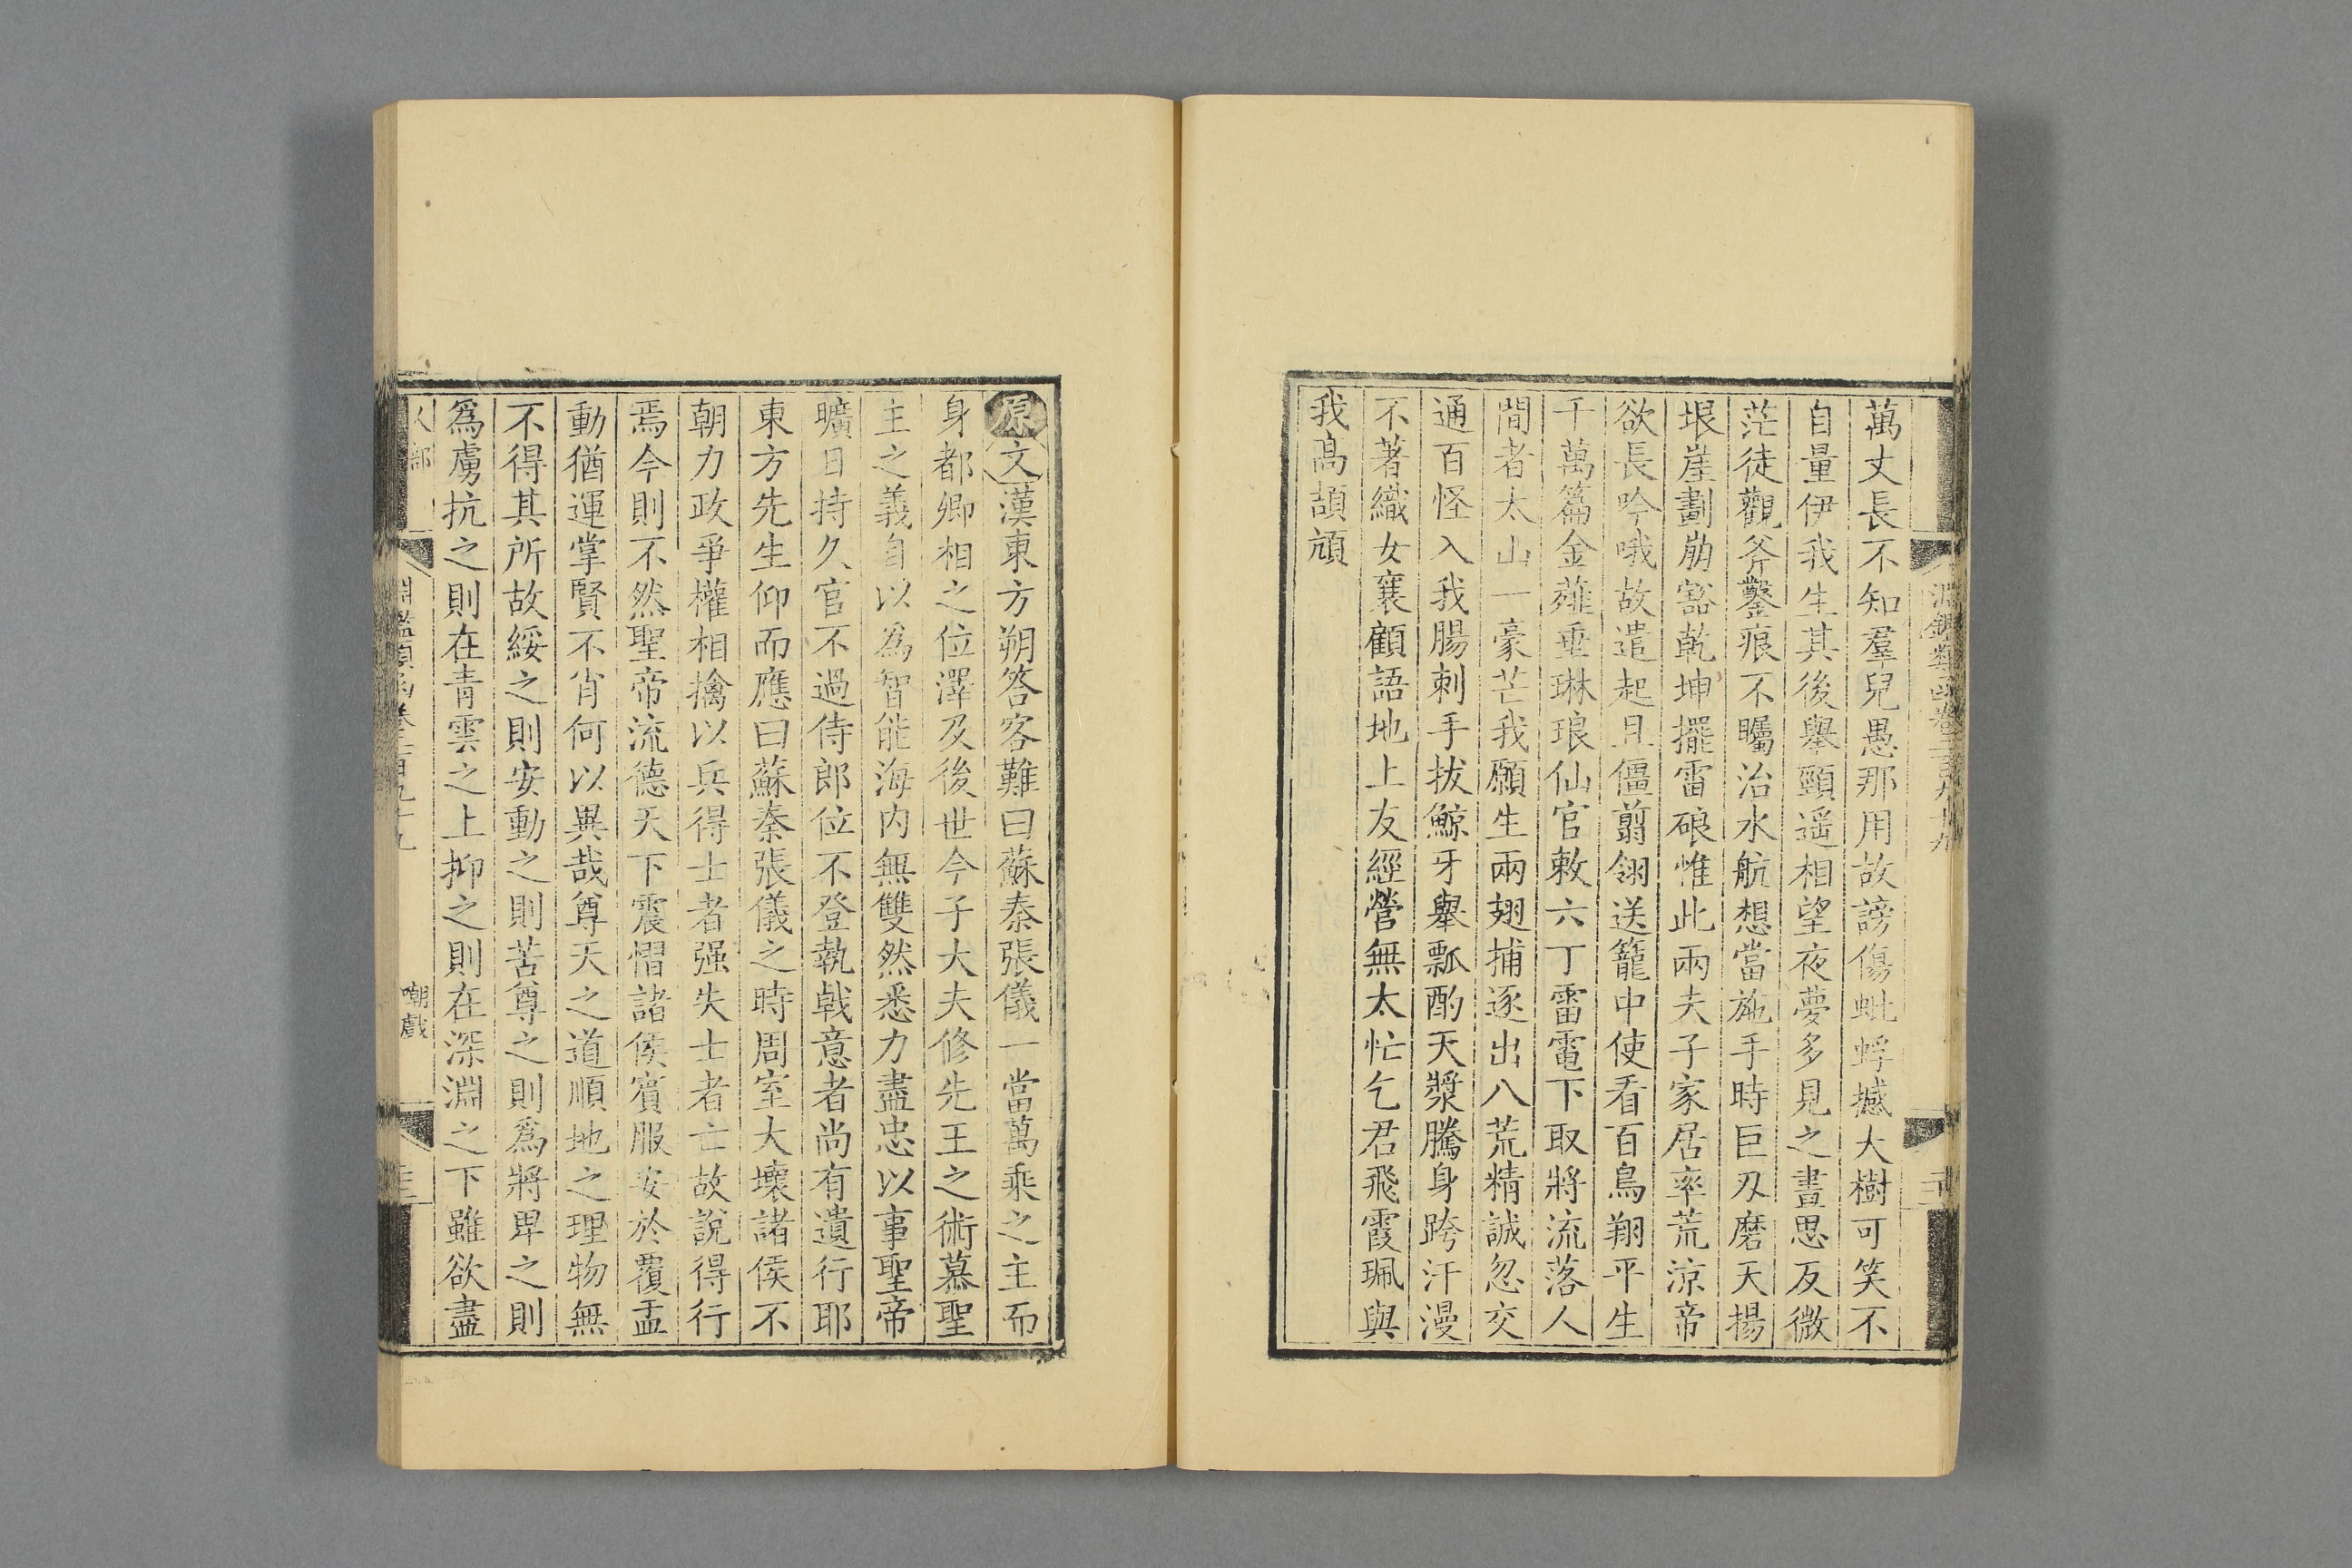 淵鑑類函卷二百九十九
萬丈長不知羣兒愚那用故謗傷蚍蜉撼大樹可笑不
自量伊我生其後舉頸遥相望夜夢多見之晝思反微
茫徒觀斧鑿痕不矚治水航想當施手時巨刃磨天揚
垠崖劃崩豁乾坤擺雷硠惟此兩夫子家居率荒涼帝
欲長吟哦故遣起且僵翦翎送籠中使看百鳥翔平生
千萬篇金薤垂琳琅仙官敕六丁雷電下取將流落人
間者太山一豪芒我願生兩翅捕逐出八荒精誠忽交
通百怪入我腸刺手拔鯨牙舉瓢酌天漿騰身跨汗漫
不著織女襄顧語地上友經營無太忙乞君飛霞珮與
我高頡頏
原文漢東方朔答客難曰蘇秦張儀一當萬乘之主而
身都卿相之位澤及後世今子大夫修先王之術慕聖
主之義自以為智能海内無雙然悉力盡忠以事聖帝
曠日持久官不過侍郎位不登執戟意者尚有遺行耶
東方先生仰而應曰蘇秦張儀之時周室大壞諸侯不
朝力政爭權相擒以兵得士者强失士者亡故說得行
焉今則不然聖帝流德天下震慴諸侯賓服安於覆盂
動猶運掌賢不肖何以異哉尊天之道順地之理物無
不得其所故綏之則安動之則苦尊之則爲將卑之則
爲虜抗之則在青雲之上抑之則在深淵之下雖欲盡
人部
淵鑑類函卷二百九十九
嘲戲